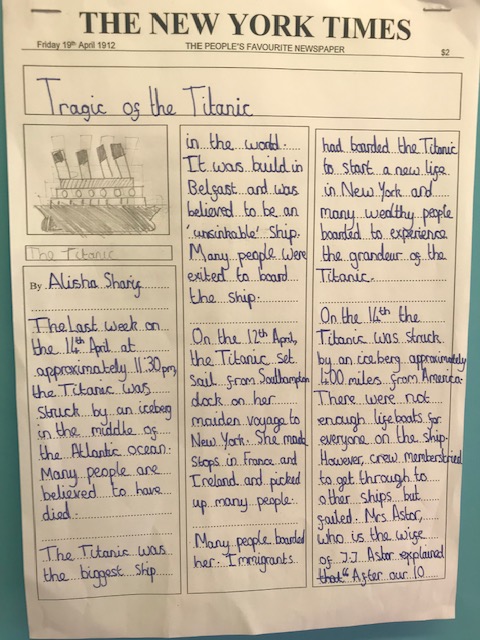 THE NEW YORK TIMES
Friday 19th April 1912
THE PEOPLE'S FAVOURITE NEWSPAPER
$2
Tragic of the Titanic
The Titanic
By Alisha Sharif
The Last week on
the 14th April at
approximately 11:30pm,
the Titanic was
struck by an iceberg
in the middle of
the Atlantic ocean.
Many people are
believed to have
died.
The Titanic was
the biggest ship
in the world.
It was build in
Belfast and was
believed to be an
'unsinkable' ship.
Many people were
exited to board
the ship.
On the 12th April,
the Titanic set
sail from Southampton
dock on her
maiden voyage to
New York. She made
stops in France and
Ireland and picked
up many people.
Many people boarded
her. Immigrants
had boarded the Titanic
to start a new life
in New York and
many wealthy people
boarded to experience
the grandeur of the
Titanic.
On the 14th the
Titanic was struck
by an iceberg approximately
400 miles from America.
There were not
enough lifeboats for
everyone on the ship.
However, crew members tried
to get through to
other ships but
failed. Mrs Astor,
who is the wife
of J.J Astor explained
that "After our 10